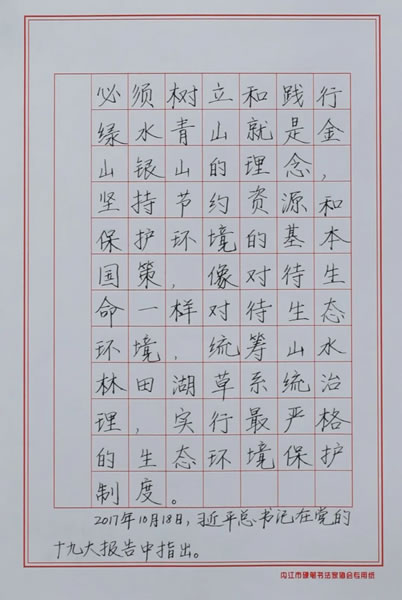 必须树立和践行
绿水青山就是金
山银山的理念，
坚持节约资源和
保护环境的基本
国策，像对待生
命一样对待生态
环境，统筹山水
林田湖草系统治
理，实行最严格
的生态环境保护
制度。
2017年10月18日，习近平总书记在党的
十九大报告中指出。
内江市硬笔书法家协会专用纸